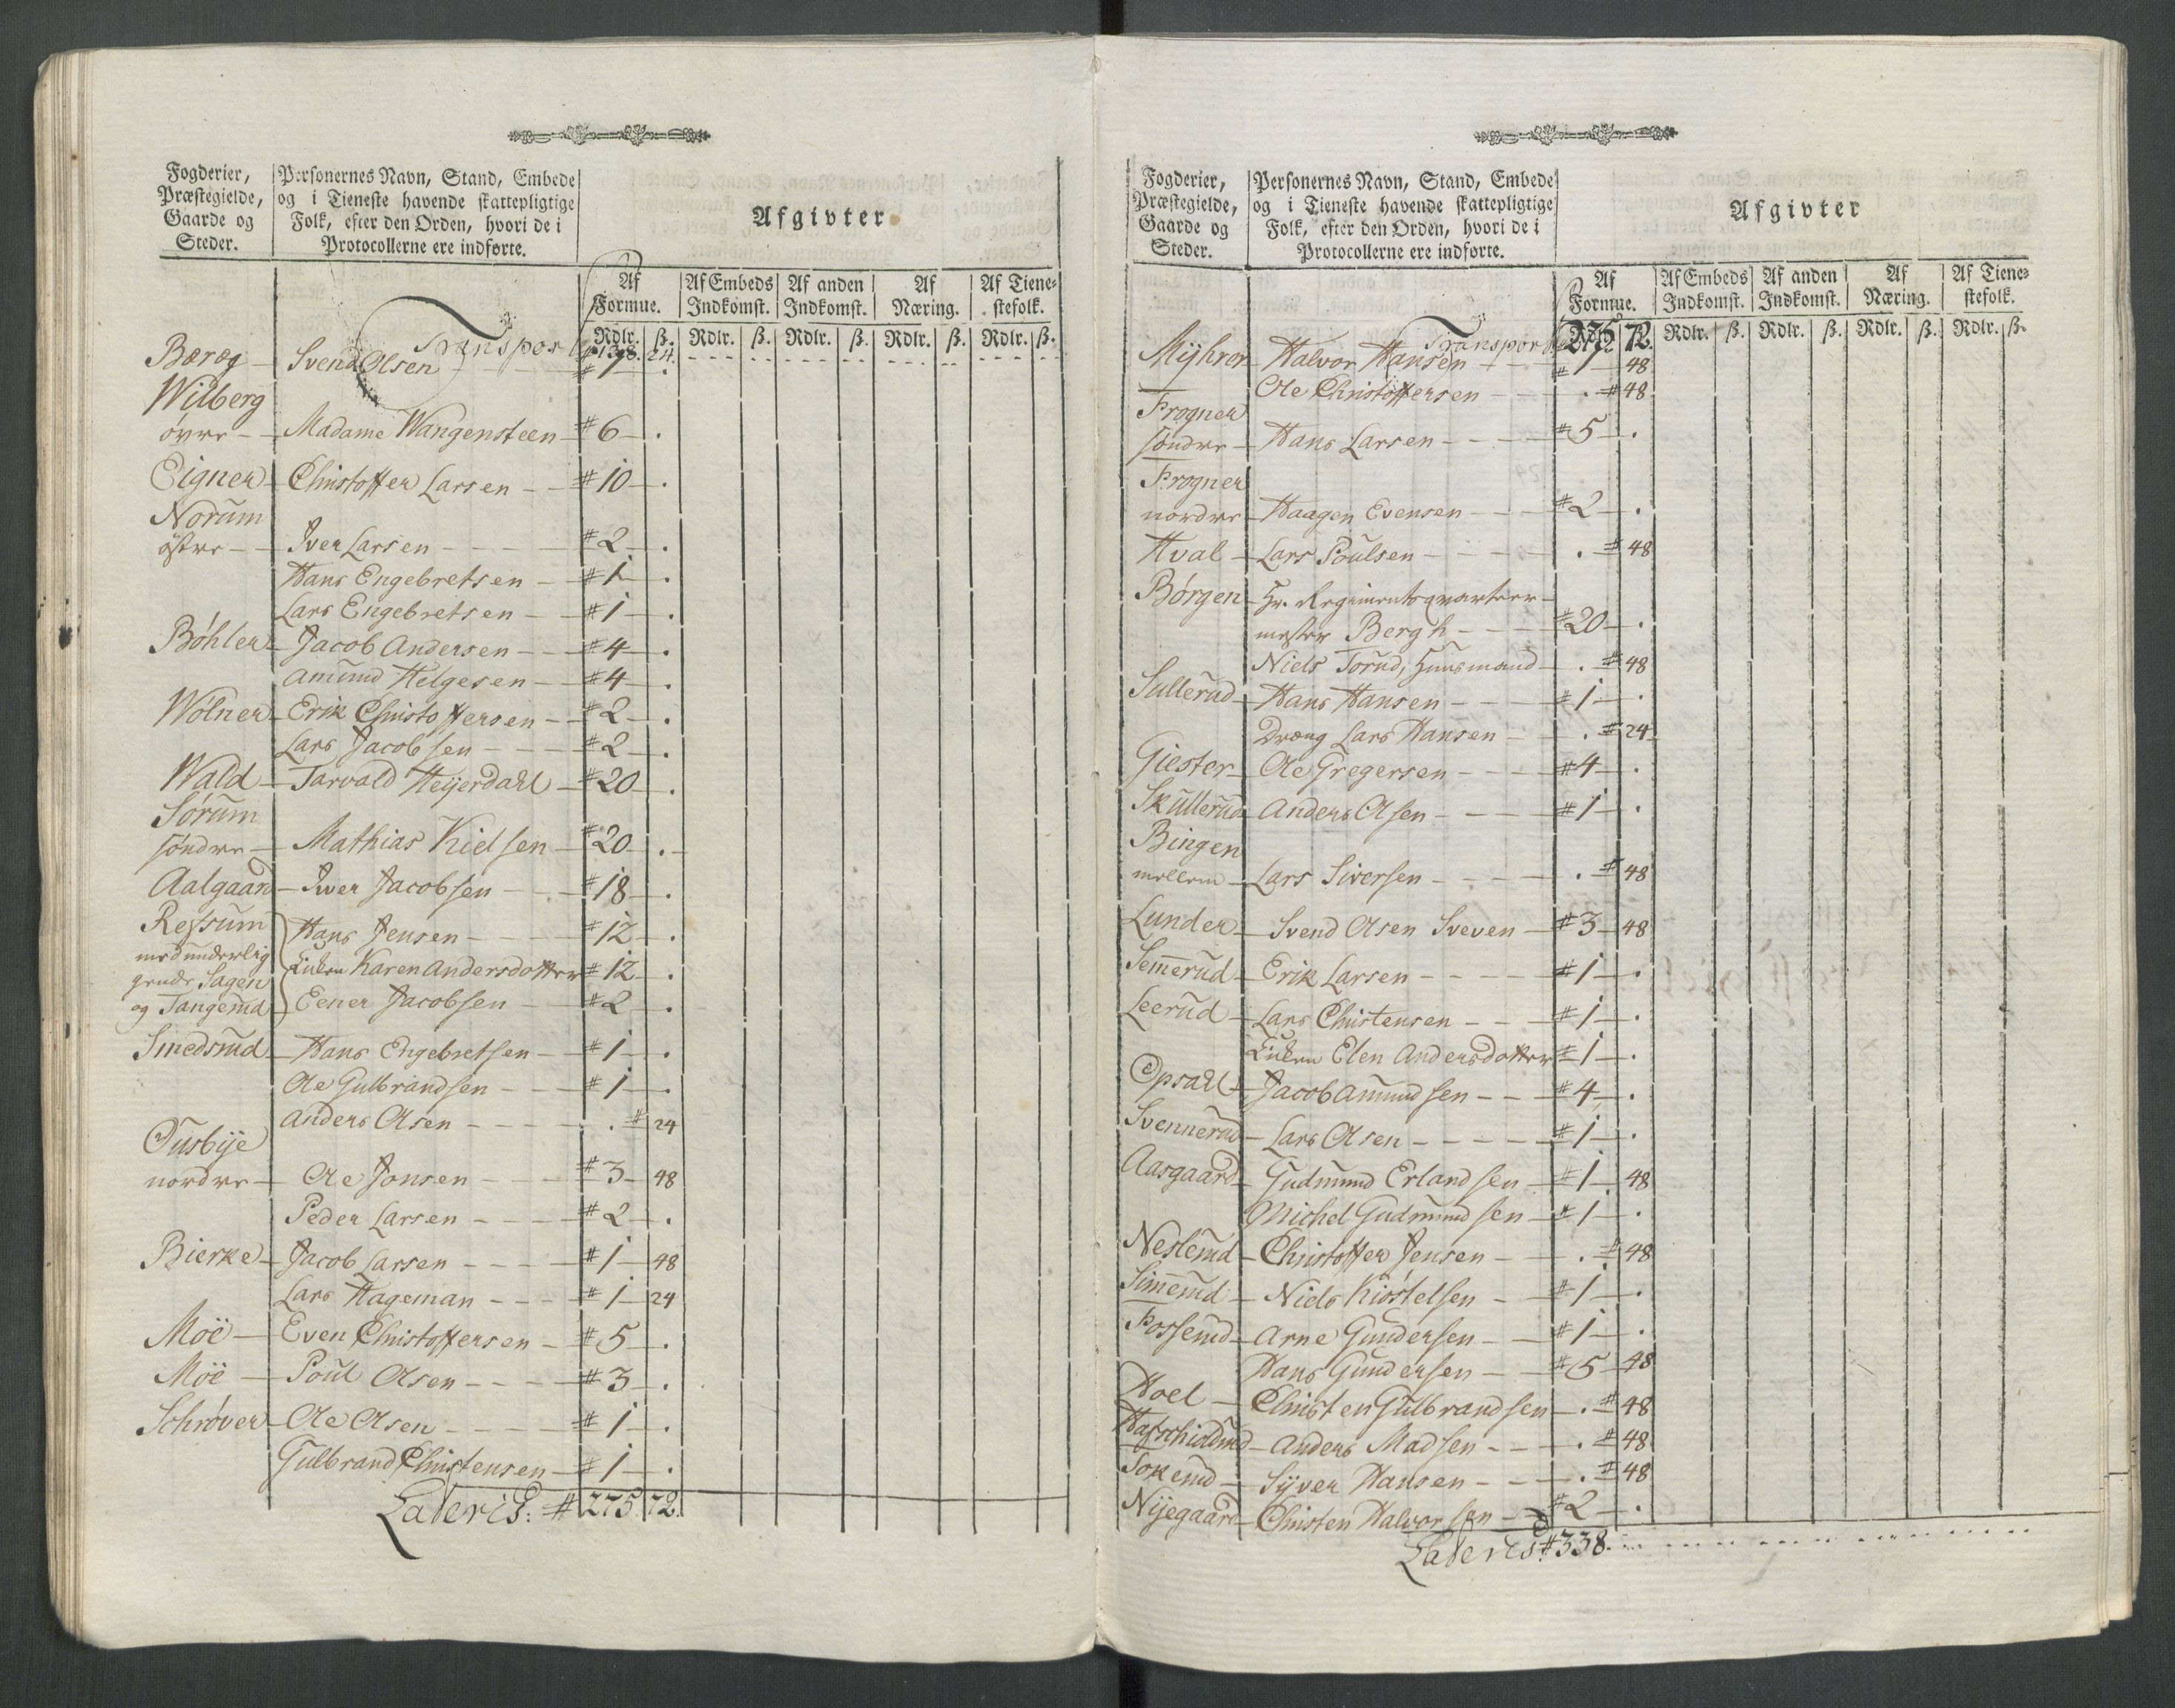 Fogderier,
Præstegielde,
Gaarde og
Steder.
Personernes Navn, Stand, Embede
og i Tieneste havende skattepligtige
Folk, efter den Orden, hvori de i
Protocollerne ere indførte.
Afgivter
Af Formue. Af Embeds Indkomst. Af anden Indkomst. Af Næring. Af Tienestefolk.
Rdlr. ß. Rdlr. ß. Rdlr. ß. Rdlr. ß. Rdlr. ß.
Transport 24
Bæreg Svend Olsen # 1 .
Wilberg
övre Madame Wangensteen # 6 .
Eigner Christoffer Larsen # 10 .
Norum
östre Iver Larsen # 2 .
Hans Engebretsen # 1 .
Lars Engebretsen # 1 .
Böhler Jacob Andersen # 4 .
Amund Helgesen # 4 .
Wölner Erik Christoffersen # 2 .
Lars Jacobsen # 2 .
Wald Tarvald Heijerdahl # 20 .
Sörum
söndre Mathias Kielsen # 20 .
Aalgaard Iver Jacobsen # 18 .
Ressum Hans Jensen # 12 .
med underlig
gende Sagen Enken Karen Andersdotter # 12 .
og Tangerud Eener Jacobsen # 2 .
Smedsrud Hans Engebretsen # 1 .
Ole Gulbrandsen # 1 .
Anders Olsen . # 24
Ousbije
nordre Ole Jonsen # 3 48
Peder Larsen # 2 .
Bierke Jacob Larsen # 1 48
Lars Hageman # 1 24
Möe Even Christoffersen # 5 .
Möe Poul Olsen # 3 .
Schröver Ole Olsen # 1 .
Gulbrand Christensen # 1 .
Lateris: # 275 72.
Fogderier,
Præstegielde,
Gaarde og
Steder.
Personernes Navn, Stand, Embede
og i Tieneste havende skattepligtige
Folk, efter den Orden, hvori de i
Protocollerne ere indførte.
Afgivter
Af Formue. Af Embeds Indkomst. Af anden Indkomst. Af Næring. Af Tienestefolk.
Rdlr. ß. Rdlr. ß. Rdlr. ß. Rdlr. ß.
Transport 275 72
Mijhrer Halvor Hansen # 1 48
Ole Christoffersen . # 48
Frogner
söndre Hans Larsen # 5 .
Frogner
nordre Haagen Evensen # 2 .
Hval Lars Poulsen . # 48
Börgen Hr. Regimentsqvarteer-
mester Bergh # 20 .
Niels Torud, Huusmand . # 48
Sullerud Hans Hansen # 1 .
Dreng Lars Hansen . # 24
Giester Ole Gregersen # 4 .
Skullerud Anders Olsen # 1 .
Bingen
mellem Lars Siversen . # 48
Lunder Svend Olsen Sveven # 3 48
Semerud Erik Larsen # 1 .
Leerud Lars Christensen # 1 .
Enken Elen Andersdotter # 1 .
Opsahl Jacob Amundsen # 4 .
Svennerud Lars Olsen # 1 .
Aasgaard Gudmund Erlandsen # 1 48
Michel Gudmundsen # 1 .
Neslerud Christoffer Jensen . # 48
Simerud Niels Kiöstelsen # 1 .
Fosserud Arne Gundersen # 1 .
Hans Gundersen # 5 48
Hoel Christen Gulbrandsen . # 48
Anders Madsen . # 48
Tokerud Sijver Hansen . # 48
Nijegaard Christen Halvorsen # 2 .
Lateris # 338.